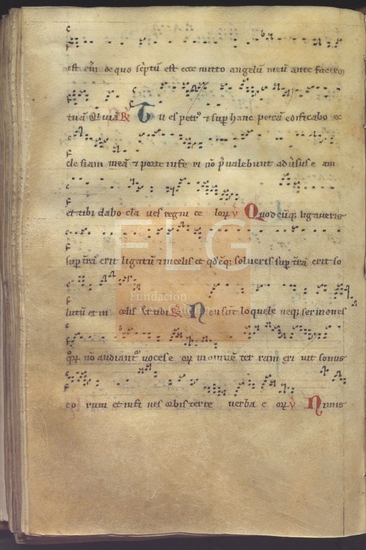 est eni de quo sc̅ptu̅ est ecce mitto angelu̅ meu̅ ante facie̅
tua̅ Tu es petr⁹ ⁊ sup hanc petra̅ edificabo ec
clesiam mea̅ ⁊ porte infe ri no̅ p̅ualebunt aduersus e am
et tibi dabo cla ues regni ce lor̅ ꝟ Quodcu̅q; ligaueris
sup t̅ra̅ erit ligatu̅ ⁊ in celis et qd̅cu̅q; solueris sup t̅ra̅ erit so
FLG
Fundación
lutu̅ et in celis Et tibi Non sunt loquele neq; sermones
quor̅ no̅ audiant̅ uoces e or̅ in omne̅ ter ram exi uit sonus
eo rum et in fi nes orbis terre uerba e or̅ ꝟ Nimis